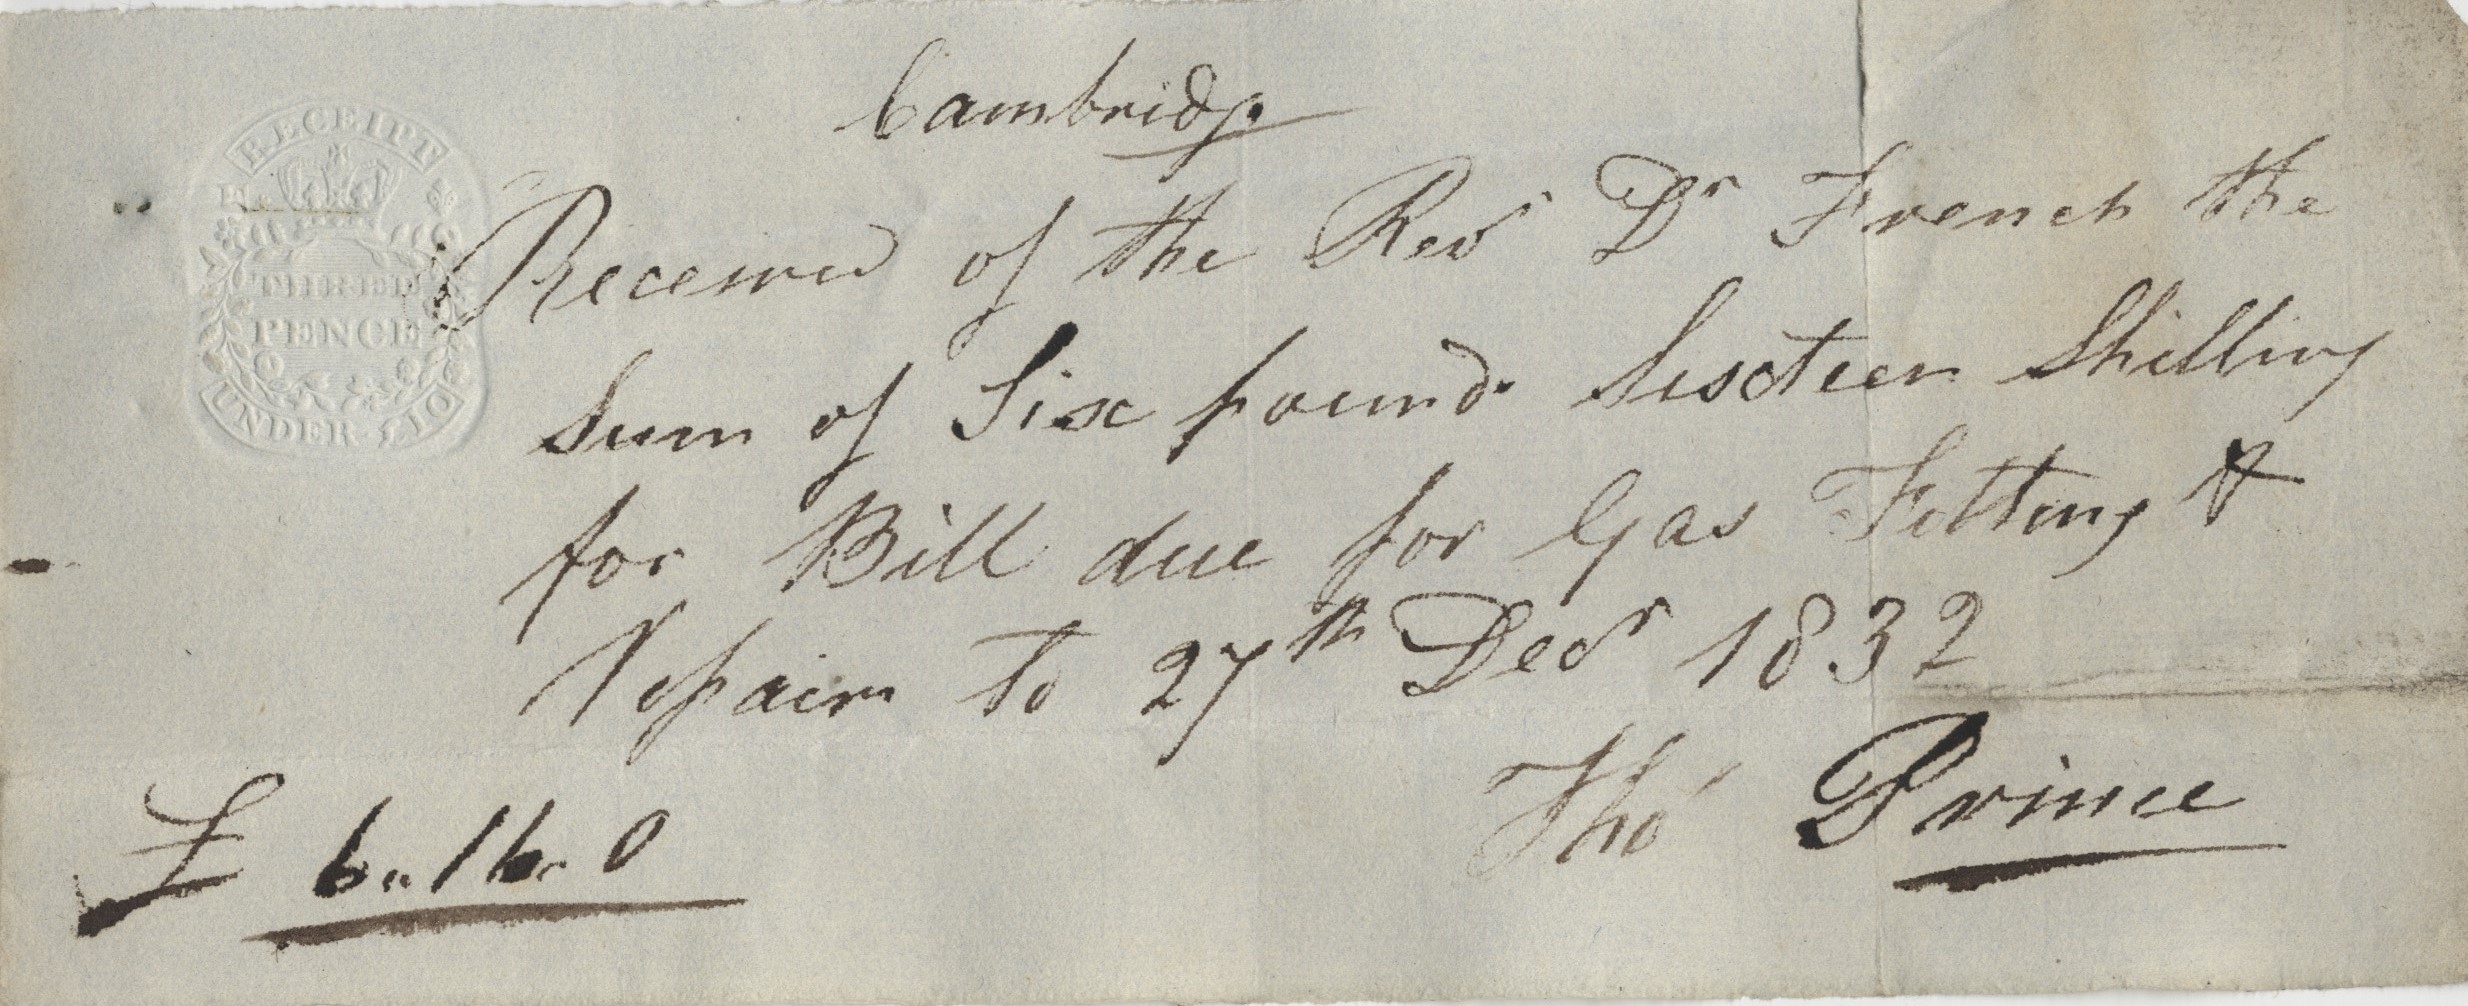 Cambridge
RECEIPT
H.
THREE
PENCE
UNDER £10
Received of the Revd Dr French the
Sum of Six pound Sixteen Shilling
for Bill due for Gas Fitting &
Repairn to 27th Decr 1832
Thos Prince
£ 6..16..0